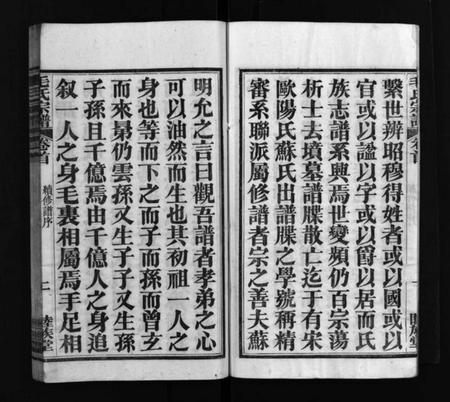 毛氏宗譜
卷首
繫世辨昭穆得姓者或以國或以
官或以諡以字或以爵以居而氏
族志譜系興焉世變頻仍百宗蕩
析士去墳墓譜牒散亡迄于有宋
歐陽氏蘇氏出譜牒之學號稱精
審系聯派屬修譜者宗之善夫蘇
明允之言曰觀吾譜者孝弟之心
可以油然而生也其初祖一人之
身也等而下之而子而孫而曾玄
而來晜仍雲孫又生子子又生孫
子孫且千億焉由千億人之身追
叙一人之身毛裏相屬焉手足相
毛氏宗譜
卷首
續修譜序
二
睦族堂